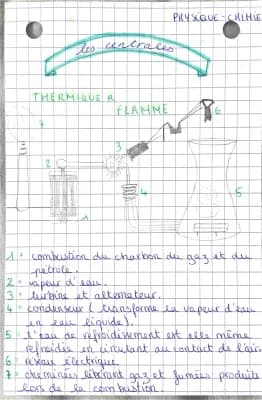 PHYSIQUE-CHIMIE
les centrales
THERMIQUE A
FLAMME
7
6
3
2
4
5
1
1 = combustion du charbon du gaz et du
pétrole.
2 = vapeur d'eau.
3 = turbine et alternateur.
4 = condenseur (transforme la vapeur d'eau
en eau liquide).
5 = l'eau de refroidissement est elle même
refroidie en circulant au contact de l'air.
6 = réseau électrique.
7 = cheminées libérant gaz et fumées produits
lors de la combustion.